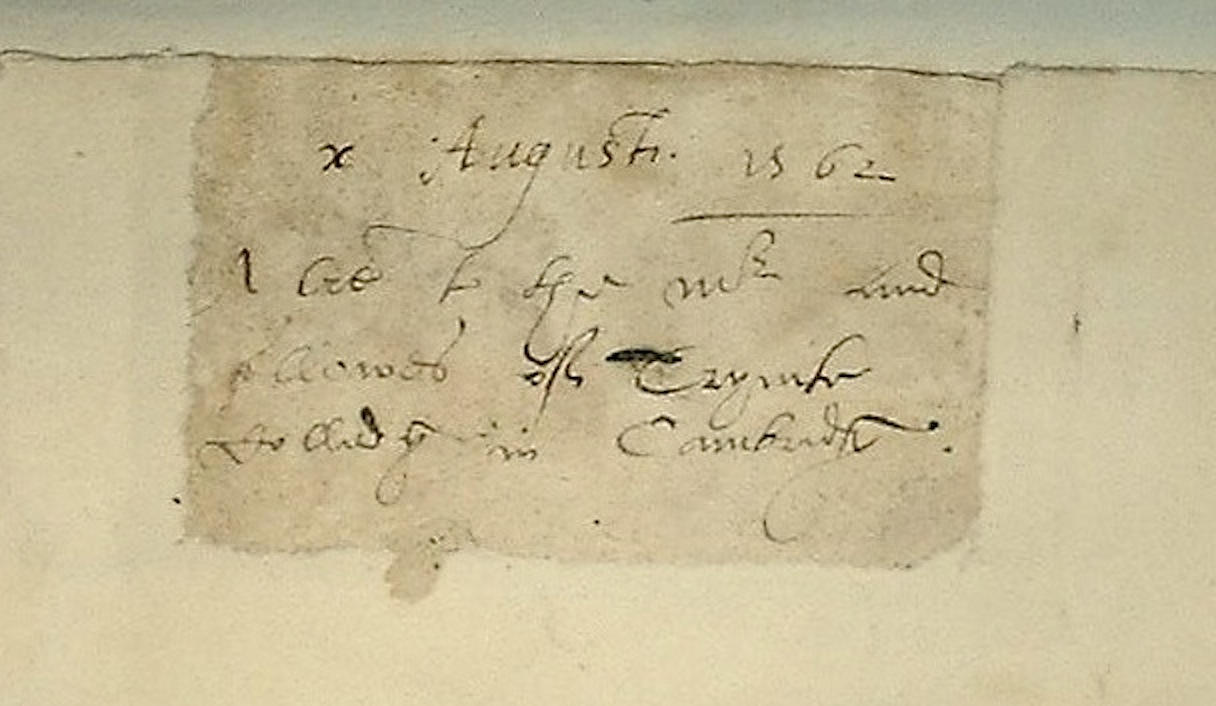 x Augusti. 1562
A lre to the mr and
fellowes off Trynite
Colledg in Cambridg.